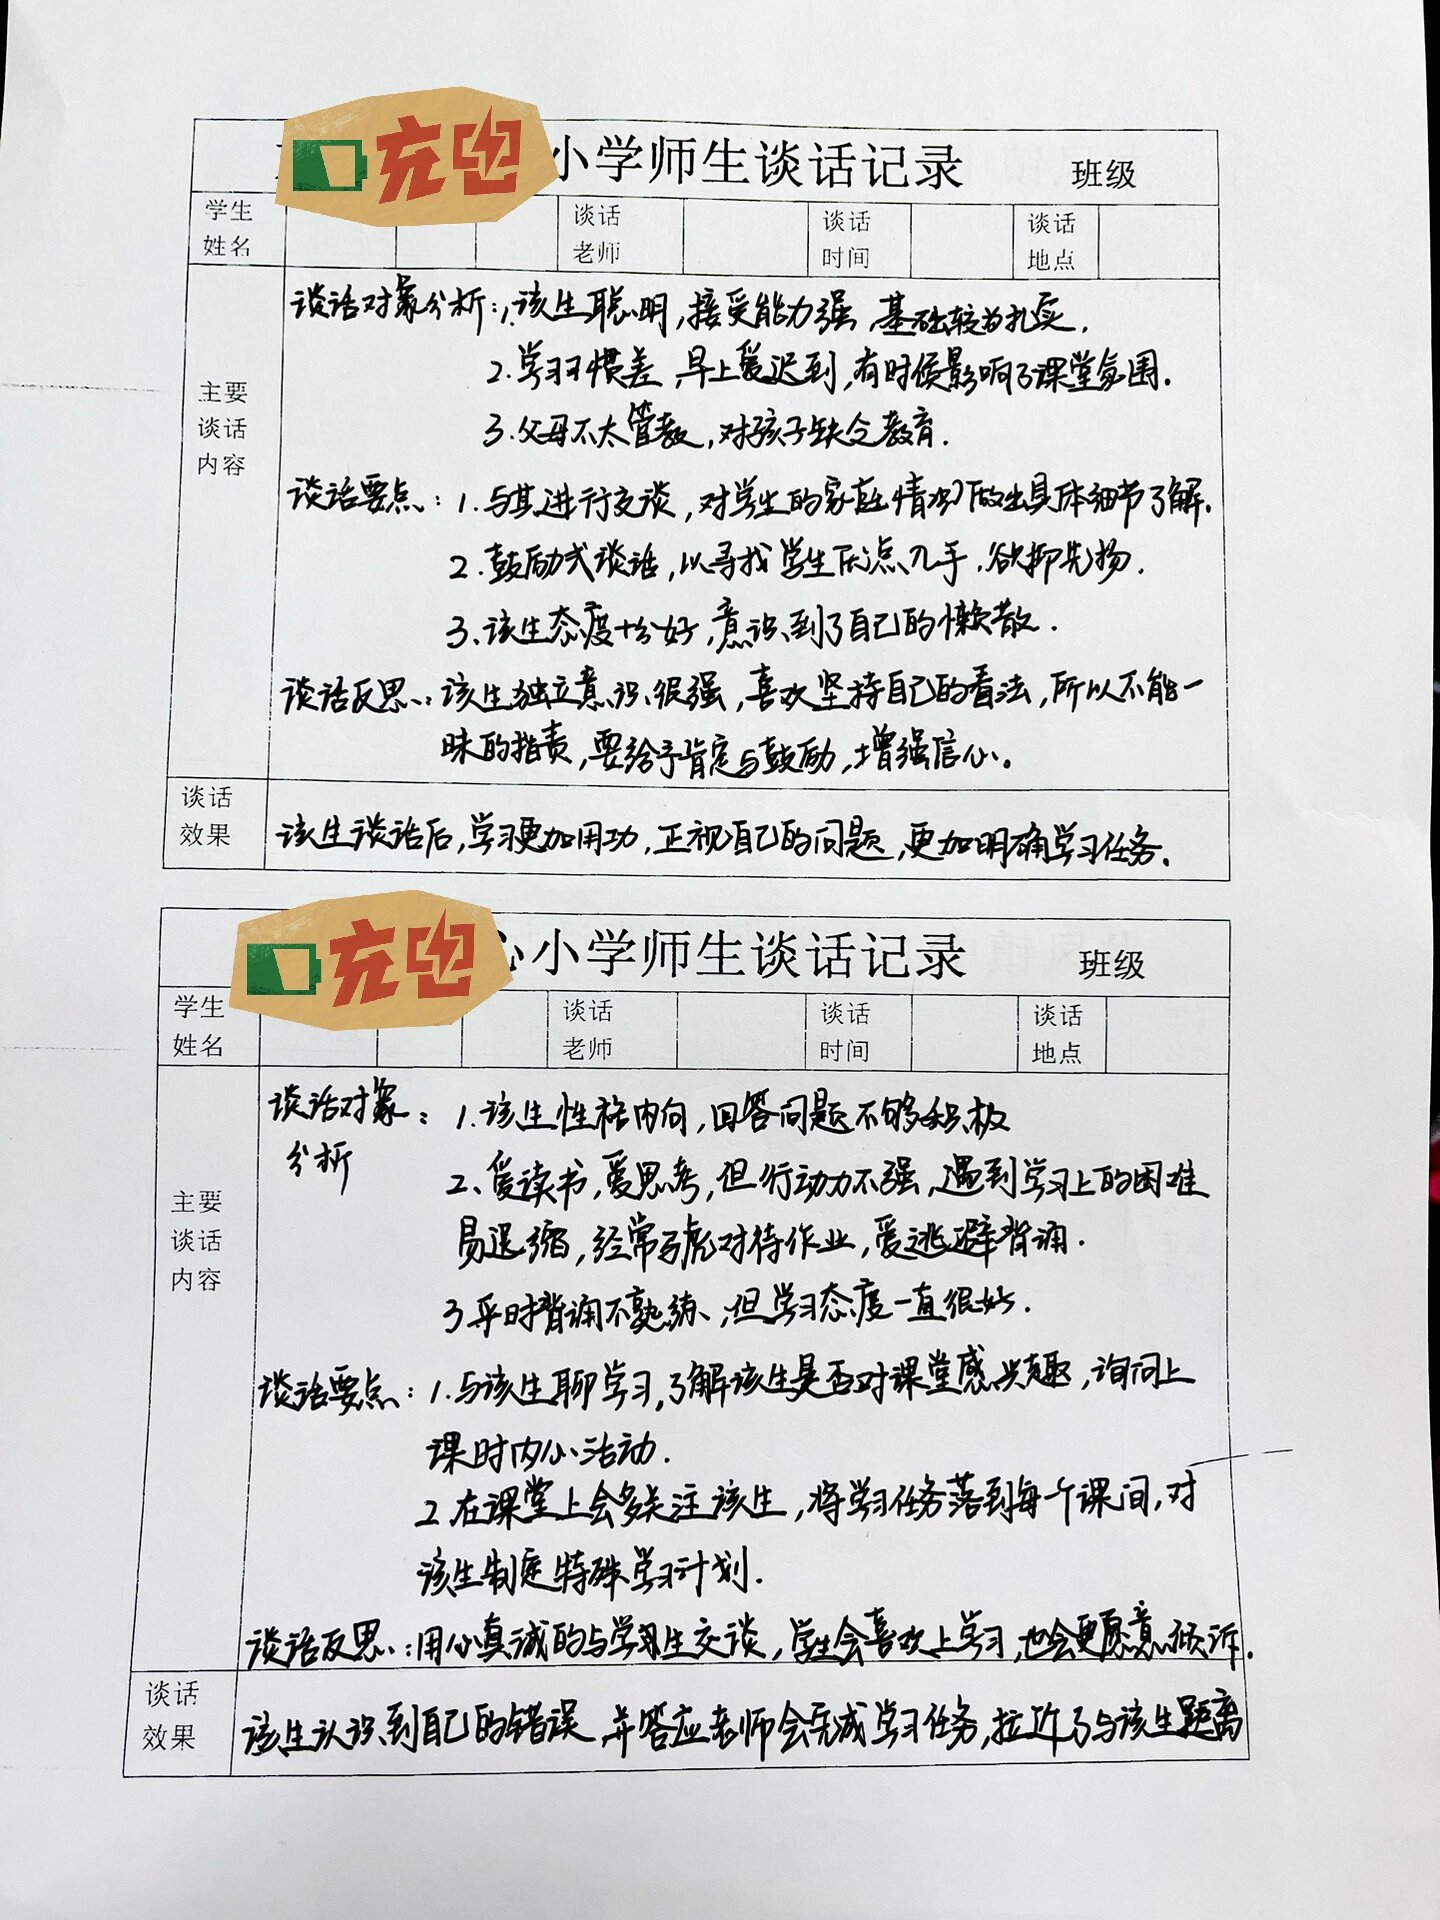 充电 小学师生谈话记录 班级
学生姓名 谈话老师 谈话时间 谈话地点
主要谈话内容
谈话对象分析：1.该生聪明，接受能力强，基础较为扎实.
2.学习习惯差，早上爱迟到，有时候影响了课堂氛围.
3.父母不太管教，对孩子缺乏教育.
谈话要点：1.与其进行交谈，对学生的家庭情况做出具体细节了解.
2.鼓励式谈话，以寻找学生闪光点入手，欲抑先扬.
3.该生态度十分好，意识到了自己的懒散.
谈话反思：该生独立意识很强，喜欢坚持自己的看法，所以不能一
味的指责，要给予肯定与鼓励，增强信心。
谈话效果
该生谈话后，学习更加用功，正视自己的问题，更加明确学习任务.
充电 心小学师生谈话记录 班级
学生姓名 谈话老师 谈话时间 谈话地点
主要谈话内容
谈话对象分析：1.该生性格内向，回答问题不够积极
2、爱读书，爱思考，但行动力不强，遇到学习上的困难
易退缩，经常马虎对待作业，爱逃避背诵.
3平时背诵不熟练、但学习态度一直很好.
谈话要点：1.与该生聊学习，了解该生是否对课堂感兴趣，询问上
课时内心活动.
2.在课堂上会多关注该生，将学习任务落到每个课间，对
该生制定特殊学习计划.
谈话反思：用心真诚的与学生交谈，学生会喜欢上学习，也会更愿意倾诉.
谈话效果
该生认识到自己的错误，并答应老师会完成学习任务，拉近了与该生距离